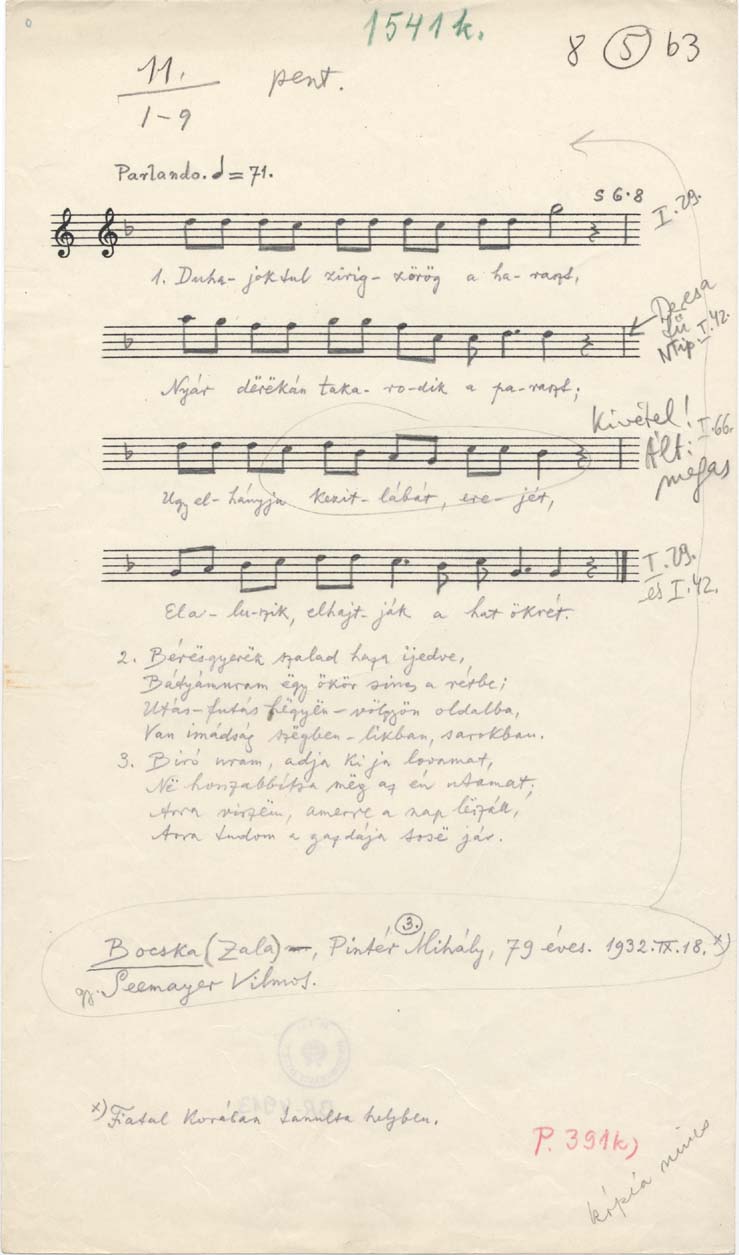 1541k.
8 (5) b3
11.
1-9
pent.
Parlando. = 71.
s 6·8
I. 29.
1. Duha- joktul zirig- zörög a ha- raszt,
I. 42.
Nyár dërëkán taka- ro- dik a pa- raszt;
Kivétel! I. 66.
Ált:
megas
Ugy el- hányja kezit- lábát, ere- jét,
I. 29.
és I. 42.
Ela- lu-szik, elhajt- ják a hat ökrét.
2. Bérësgyerëk szalad haza ijedve,
Bátyámuram ëgy ökör sincs a rétbe;
Utás-futás hëgyën-völgyön oldalba,
Van imádság szëgben-likban, sarokban.
3. Biró uram, adja ki ja lovamat,
Në hosszabbítsa mëg az én utamat;
Arra viszëm, amerre a nap lëszáll,
Arra tudom a gazdája sosë jár.
Bocska (Zala) –, Pintér Mihály, (3.) 79 éves. 1932. IX. 18. x)
gy. Seemayer Vilmos.
x) Fiatal korában tanulta helyben.
P. 391k)
kópia nincs